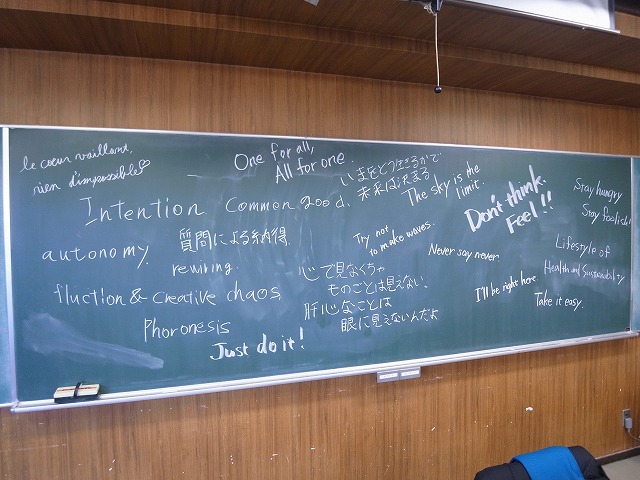 le cœur vaillant,
rien d'impossible♡
One for all,
All for one.
いまをどう生きるかで
未来は決まる
The sky is the
limit.
Don't think.
Feel!!
Stay hungry
Stay foolish!
Intention
Common good.
autonomy.
質問による納得
rewiring.
Try not
to make waves.
Never say never.
Lifestyle of
Health and Sustainability
fluction & creative chaos
心で見なくちゃ
ものごとは見えない、
肝心なことは
眼に見えないんだよ
I'll be right here
Take it easy.
Phoronesis
Just do it!